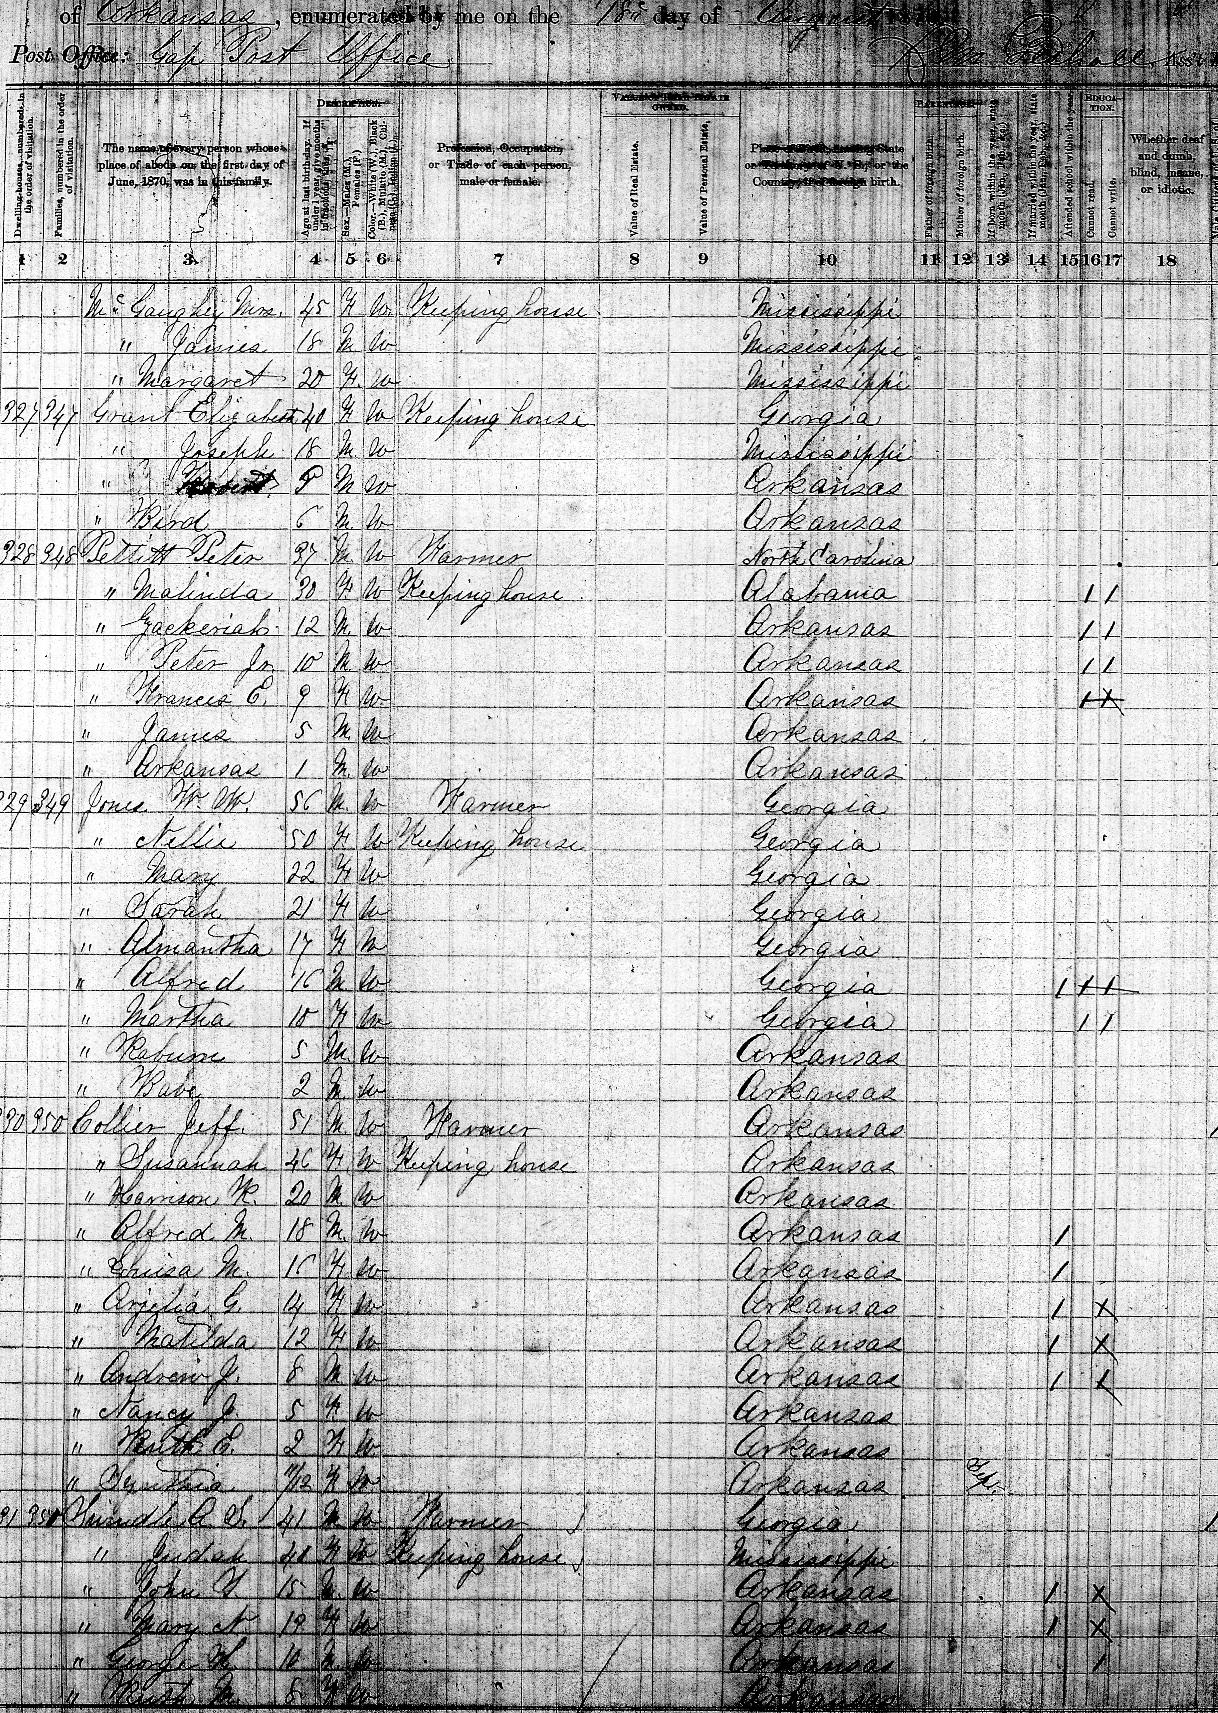 of Arkansas, enumerated by me on the 18th day of August
Post Office: Gap Post Office
Dwelling-houses, numbered in the order of visitation.
Families, numbered in the order of visitation.
The name of every person whose place of abode on the first day of June, 1870, was in this family.
DESCRIPTION.
Age at last birthday. If under 1 year, give months in fractions
Sex.—Males (M.), Females (F.)
Color.—White (W.), Black (B.), Mulatto (M.), Chinese (C.), Indian (I.)
Profession, Occupation, or Trade of each person, male or female.
VALUE OF REAL ESTATE OWNED.
Value of Real Estate.
Value of Personal Estate.
Place of Birth, naming State or Territory of U. S.; or the Country, if of foreign birth.
PARENTAGE.
Father of foreign birth.
Mother of foreign birth.
If born within the year, state month (Jan., Feb., &c.)
If married within the year, state month (Jan., Feb., &c.)
EDUCATION.
Attended school within the year.
Cannot read.
Cannot write.
Whether deaf and dumb, blind, insane, or idiotic.
1 2 3 4 5 6 7 8 9 10 11 12 13 14 15 16 17 18
Mc Gaughey Mrs. 45 F W Keeping house Mississippi
" James 18 M W Mississippi
" Margaret 20 F W Mississippi
327 347 Grant Elizabeth 40 F W Keeping house Georgia
" Joseph 18 M W Mississippi
" 8 M W Arkansas
" Bird 6 M W Arkansas
328 348 Pettitt Peter 37 M W Farmer North Carolina
" Malinda 30 F W Keeping house Alabama / /
" Zackeriah 12 M W Arkansas / /
" Peter Jr. 10 M W Arkansas / /
" Francis E. 9 F W Arkansas
" James 5 M W Arkansas
" Arkansas 1 M W Arkansas
329 349 Jones W. W. 56 M W Farmer Georgia
" Nellie 50 F W Keeping house Georgia
" Mary 22 F W Georgia
" Sarah 21 F W Georgia
" Almantha 17 F W Georgia
" Alfred 16 M W Georgia / / /
" Martha 10 F W Georgia / /
" Raburn 5 M W Arkansas
" 2 M W Arkansas
330 350 Collier Jeff. 51 M W Farmer Arkansas
" Susannah 46 F W Keeping house Arkansas
" Harrison R. 20 M W Arkansas
" Alfred M. 18 M W Arkansas /
" Louisa M. 16 F W Arkansas /
" Arjelia G. 14 F W Arkansas / X
" Matilda 12 F W Arkansas / X
" Andrew J. 8 M W Arkansas / /
" Nancy J. 5 F W Arkansas
" Ruth E. 2 F W Arkansas
" Cynthia 11/12 F W Arkansas Sept.
A. S. 41 M W Farmer Georgia
" Judah 40 F W Keeping house Mississippi
" John 15 M W Arkansas / X
" Mary N. F W Arkansas / X
" George 10 M W Arkansas /
" Ruth M. 8 F W Arkansas